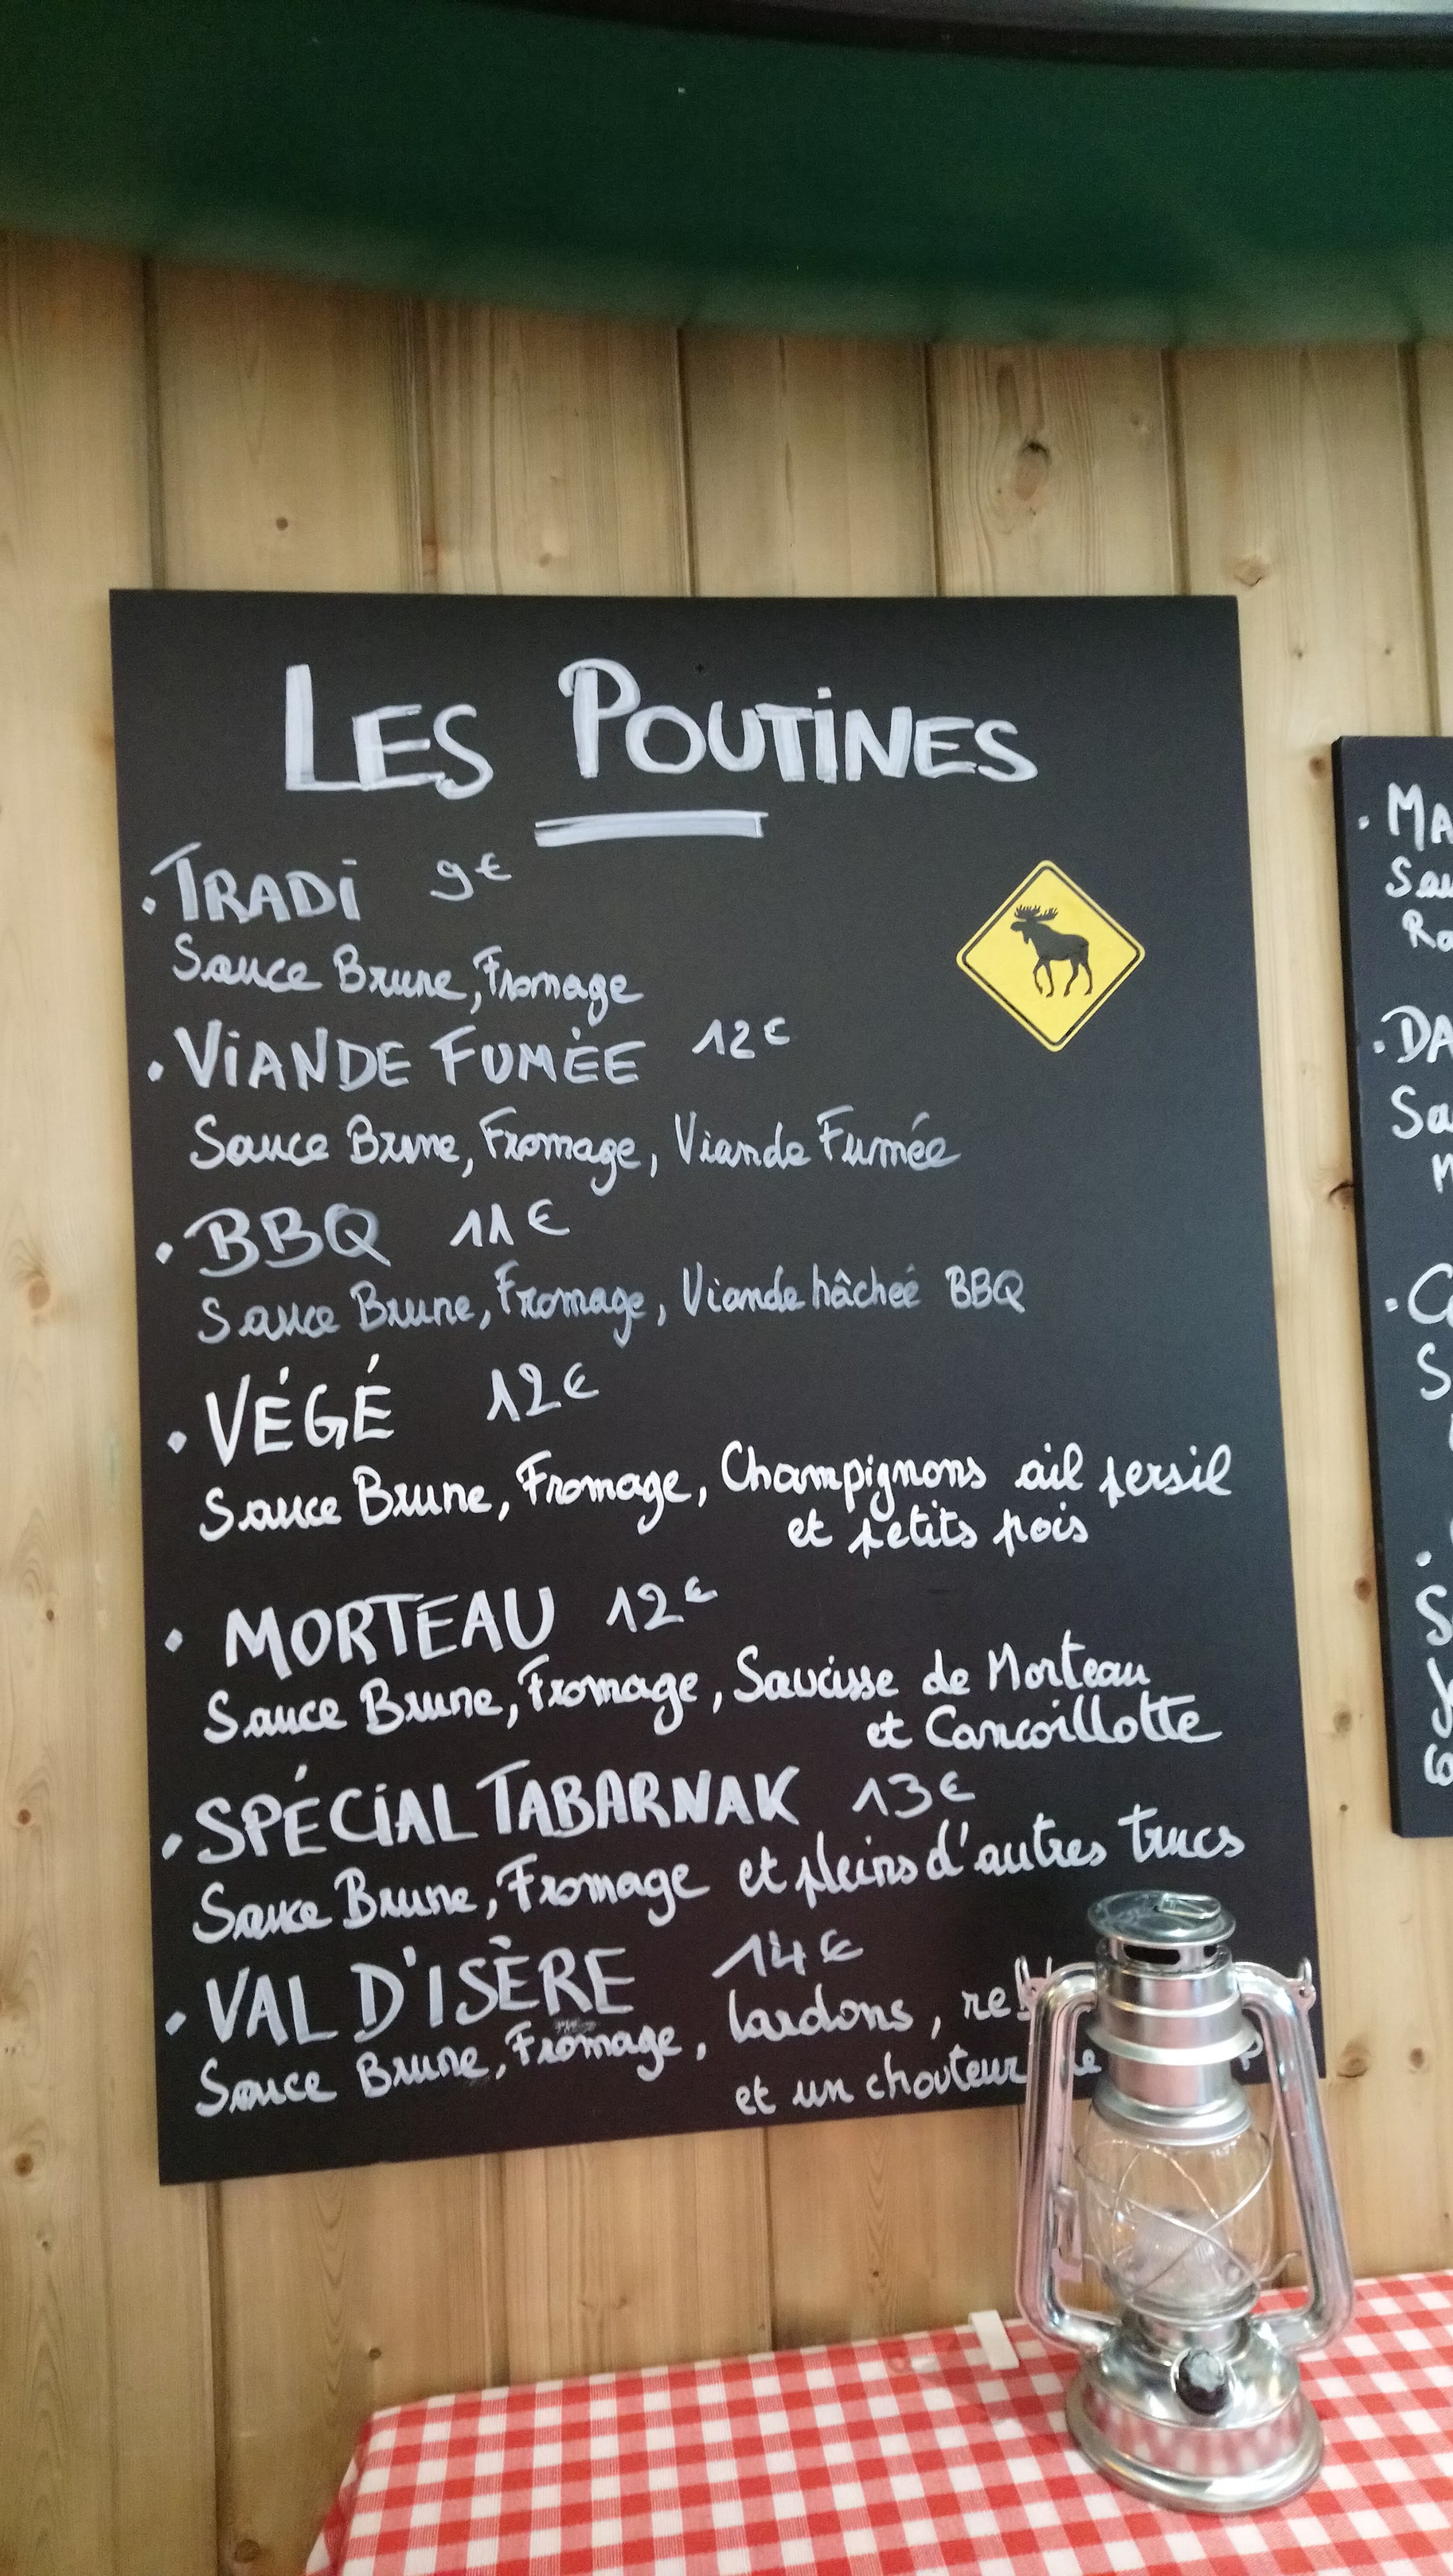 LES POUTINES
• TRADI 9€
Sauce Brune, Fromage
• VIANDE FUMÉE 12€
Sauce Brune, Fromage, Viande Fumée
• BBQ 11€
Sauce Brune, Fromage, Viande hâcheé BBQ
• VÉGÉ 12€
Sauce Brune, Fromage, Champignons ail persil
et petits pois
• MORTEAU 12€
Sauce Brune, Fromage, Saucisse de Morteau
et Cancoillotte
• SPÉCIAL TABARNAK 13€
Sauce Brune, Fromage et pleins d'autres trucs
• VAL D'ISÈRE 14€
Sauce Brune, Fromage, lardons,
et un chouteur
• MA
Sau
Ro
• DA
Sa